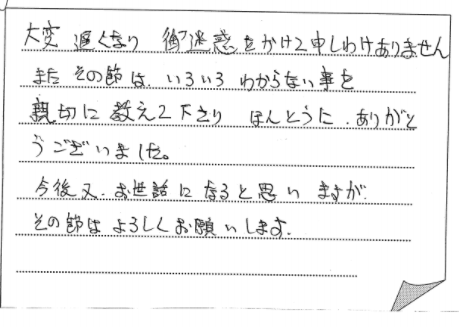 大変 遅くなり 御迷惑をかけて申しわけありません
また その節は、いろいろ わからない事を
親切に 教えて下さり ほんとうに、ありがと
うございました。
今後又、お世話になると思い ますが、
その節は よろしくお願いします。